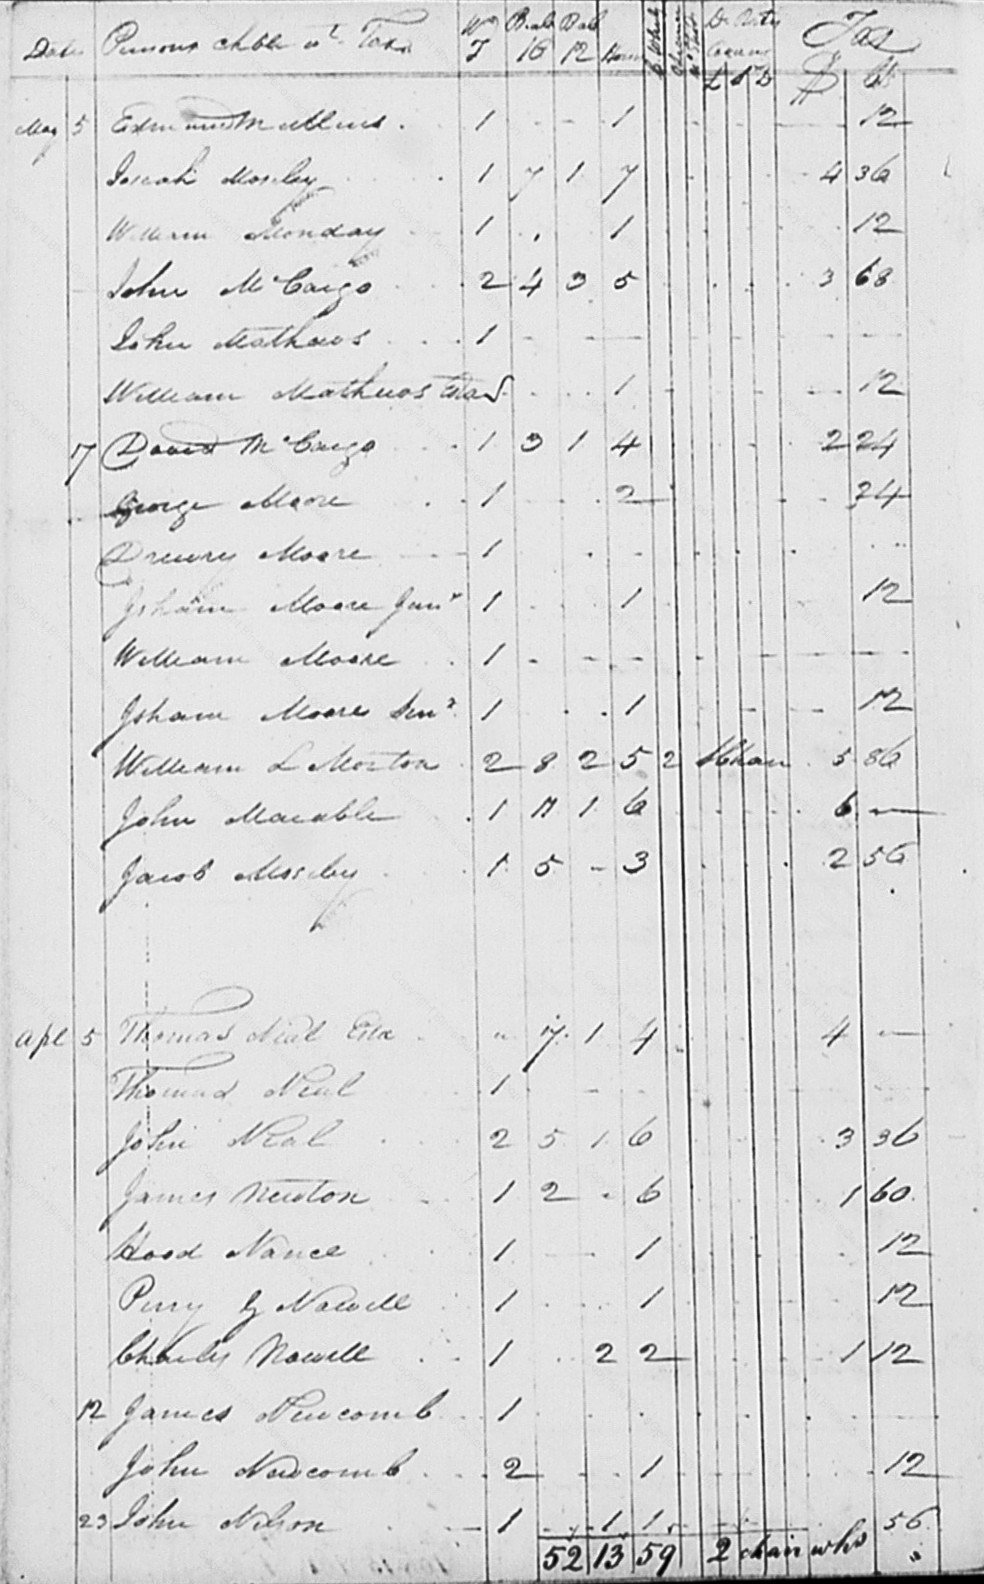 Date Persons Chble wt Tax W T Blaks 16 Blak 12 Horses Tax
£ S D $ Cts
May 5 Edmund Mullins 1 - - 1 12
Josiah Moseley 1 7 1 7 4 36
William Monday 1 . 1 12
John McCargo 2 4 3 5 3 68
John Mathews 1 - - -
William Mathews Estate 1 12
17 David McCargo 1 3 1 4 2 24
George Moore 1 2 24
Drewry Moore 1
Isham Moore Junr 1 1 12
William Moore 1 - - -
Isham Moore Senr 1 1 12
William L Morton 2 8 2 5 2 Chair 5 86
John Marable 1 11 1 6 6 —
Jacob Moseley 1 5 - 3 2 56
Apl 5 Thomas Neal Esta " 7 1 4 4 —
Thomas Neal 1
John Neal 2 5 1 6 3 36
James Newton 1 2 - 6 1 60
Hood Nance 1 - - 1 12
Perry G Nowell 1 1 12
Charles Nowell 1 2 2 1 12
12 James Newcomb 1
John Newcomb 2 1 12
23 John Nelson 1 1 1 56
52 13 59 2 chair whs